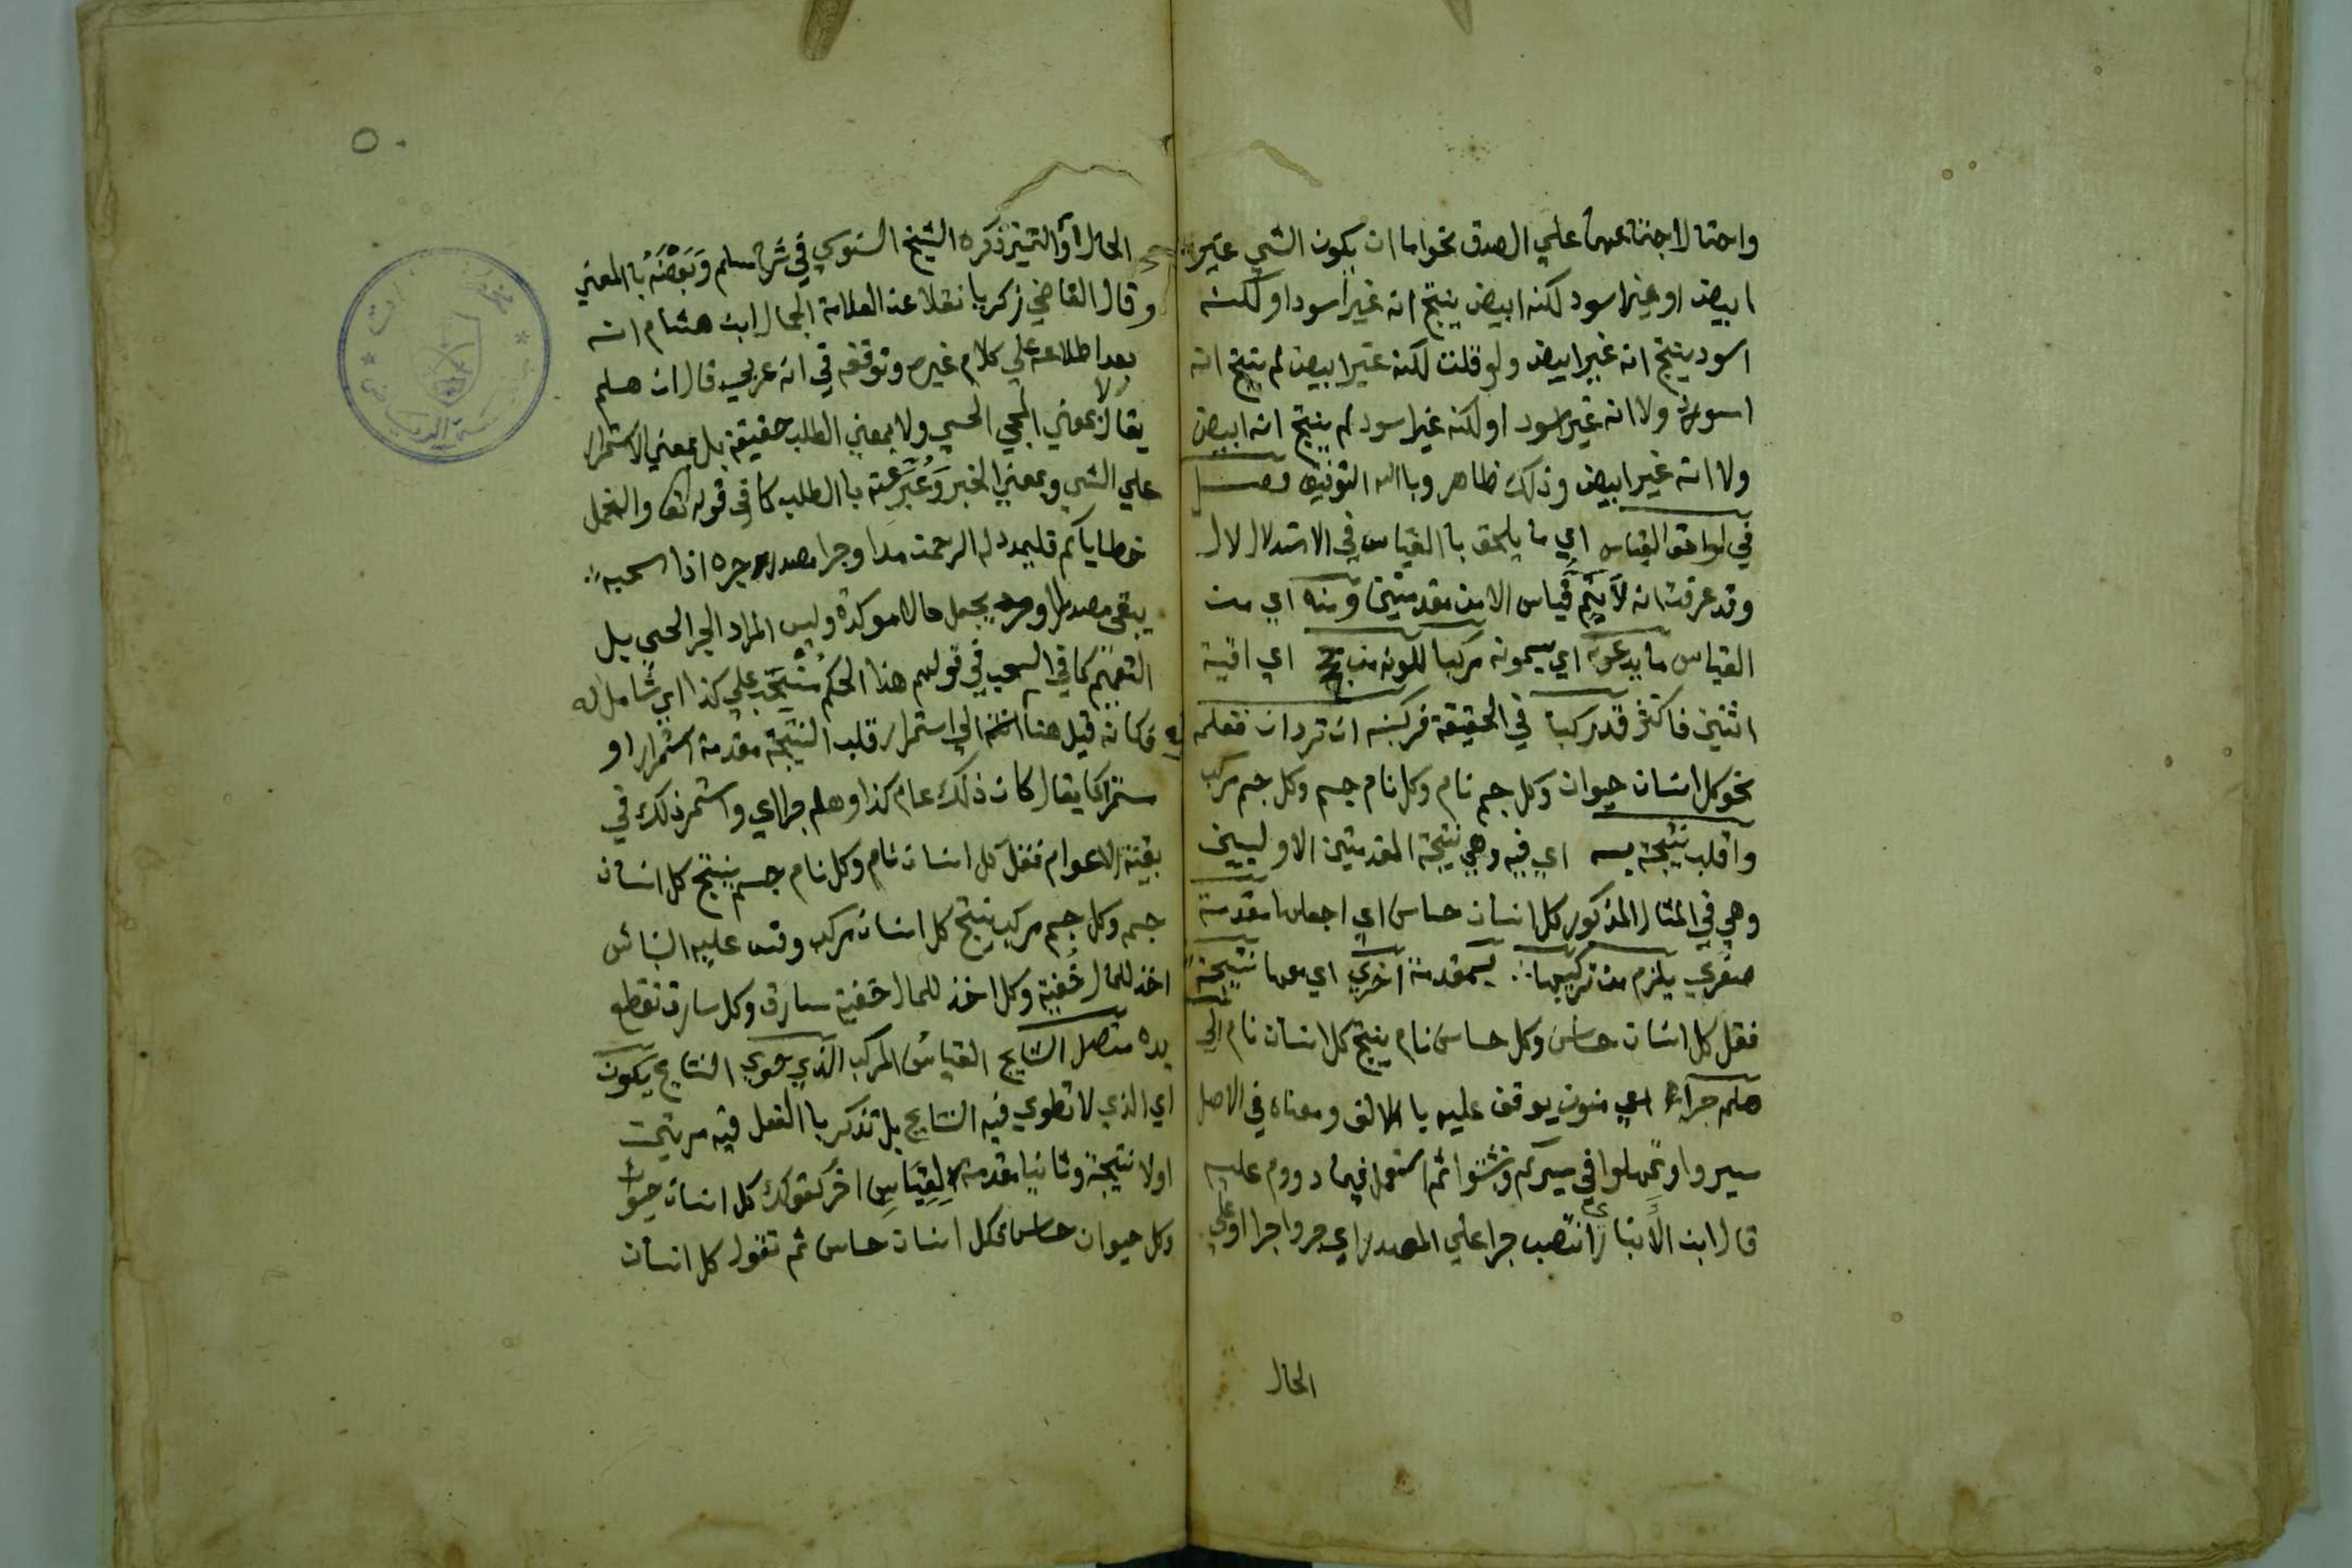 واحتمالاجتماعهما علي الصدق نحواما ان يكون الشي غير
ابيض او غير اسود لكنه ابيض ينتج انه غير اسود او لكنه
اسود ينتج انه غير ابيض ولو قلت لكنه غير ابيض لم ينتج انه
اسود ولا انه غير اسود او لكنه غير اسود لم ينتج انه ابيض
ولا انه غير ابيض وذلك ظاهر وباالله التوفيق فصل
في لواحق القياس اي ما يلحق باالقياس في الاستدلال لال
وقد عرفت انه لا يتم قياس الا من مقدمتين ومنه اي من
القياس ما يدعونه اي يسمونه مركبا لكونه من حجج اي اقيسة
اثنين فاكثر قد ركبا في الحقيقة فركبنه ان ترد ان تعلمه
نحو كل انسان حيوان وكل جسم نام وكل نام جسم وكل جسم مركب
واقلب نتيجة به اي فيه وهي نتيجة المقدمتين الاوليين
وهي في المثال المذكور كل انسان حساس اي اجعلها مقدمة
صغري يلزم من تركيبها بمقدمة اخري اي معها نتيجة
فقل كل انسان حساس وكل حساس نام ينتج كل انسان نام الي
هلم جرا اي منون يوقف عليه باالالف ومعناه في الاصل
سيروا وتمهلوا في سيركم وتثبتوا ثم استعمل فيما دووم عليه
قال ابن الانباري انتصب جرا علي المصدر اي جروا جرا او علي
الحال
الحال او التميز ذكره الشيخ السنوسي في شرح سلم وبعضه باالمعني
وقال القاضي زكريا نقلا عن العلامة الجمال ابن هشام انه
بعد اطلاعه علي كلام غيره وتوقفه في انه عربي قال ان هلم
يقال لا بمعني المجي الحسي ولا بمعني الطلب حقيقة بل بمعني الاستمرار
علي الشي وبمعني الخبر وعبر عنه باالطلب كما في قوله تعالي ولنحمل
خطاياكم فليمدد له الرحمن مدا وجرا مصدر جره اذا سحبه
يبقي مصدرا او يجعل حالا موكدة وليس المراد الجر الحسي بل
التعميم كما في السحب في قولهم هذا الحكم منسحب علي كذا اي شامل له
فكانه قيل هنا الي استمرار قلب النتيجة مقدمة استمرارا او
مستمرا كما يقال كان ذلك عام كذا وهلم جرا اي واستمر ذلك في
بقية الاعوام فقل كل انسان نام وكل نام جسم ينتج كل انسان
جسم وكل جسم مركب ينتج كل انسان مركب وقس عليه النباش
اخذ للمال خفية وكل اخذ للمال خفية سارق وكل سارق تقطع
يده متصل النتايج القياس المركب الذي حوي النتايج يكون
اي الذي لا تطوي فيه النتايج بل تذكر باالفعل فيه مرتين
اولا نتيجة وثانيا مقدمة لقياس اخر كقولك كل انسان حيوان
وكل حيوان حساس فكل انسان حساس ثم تقول كل انسان